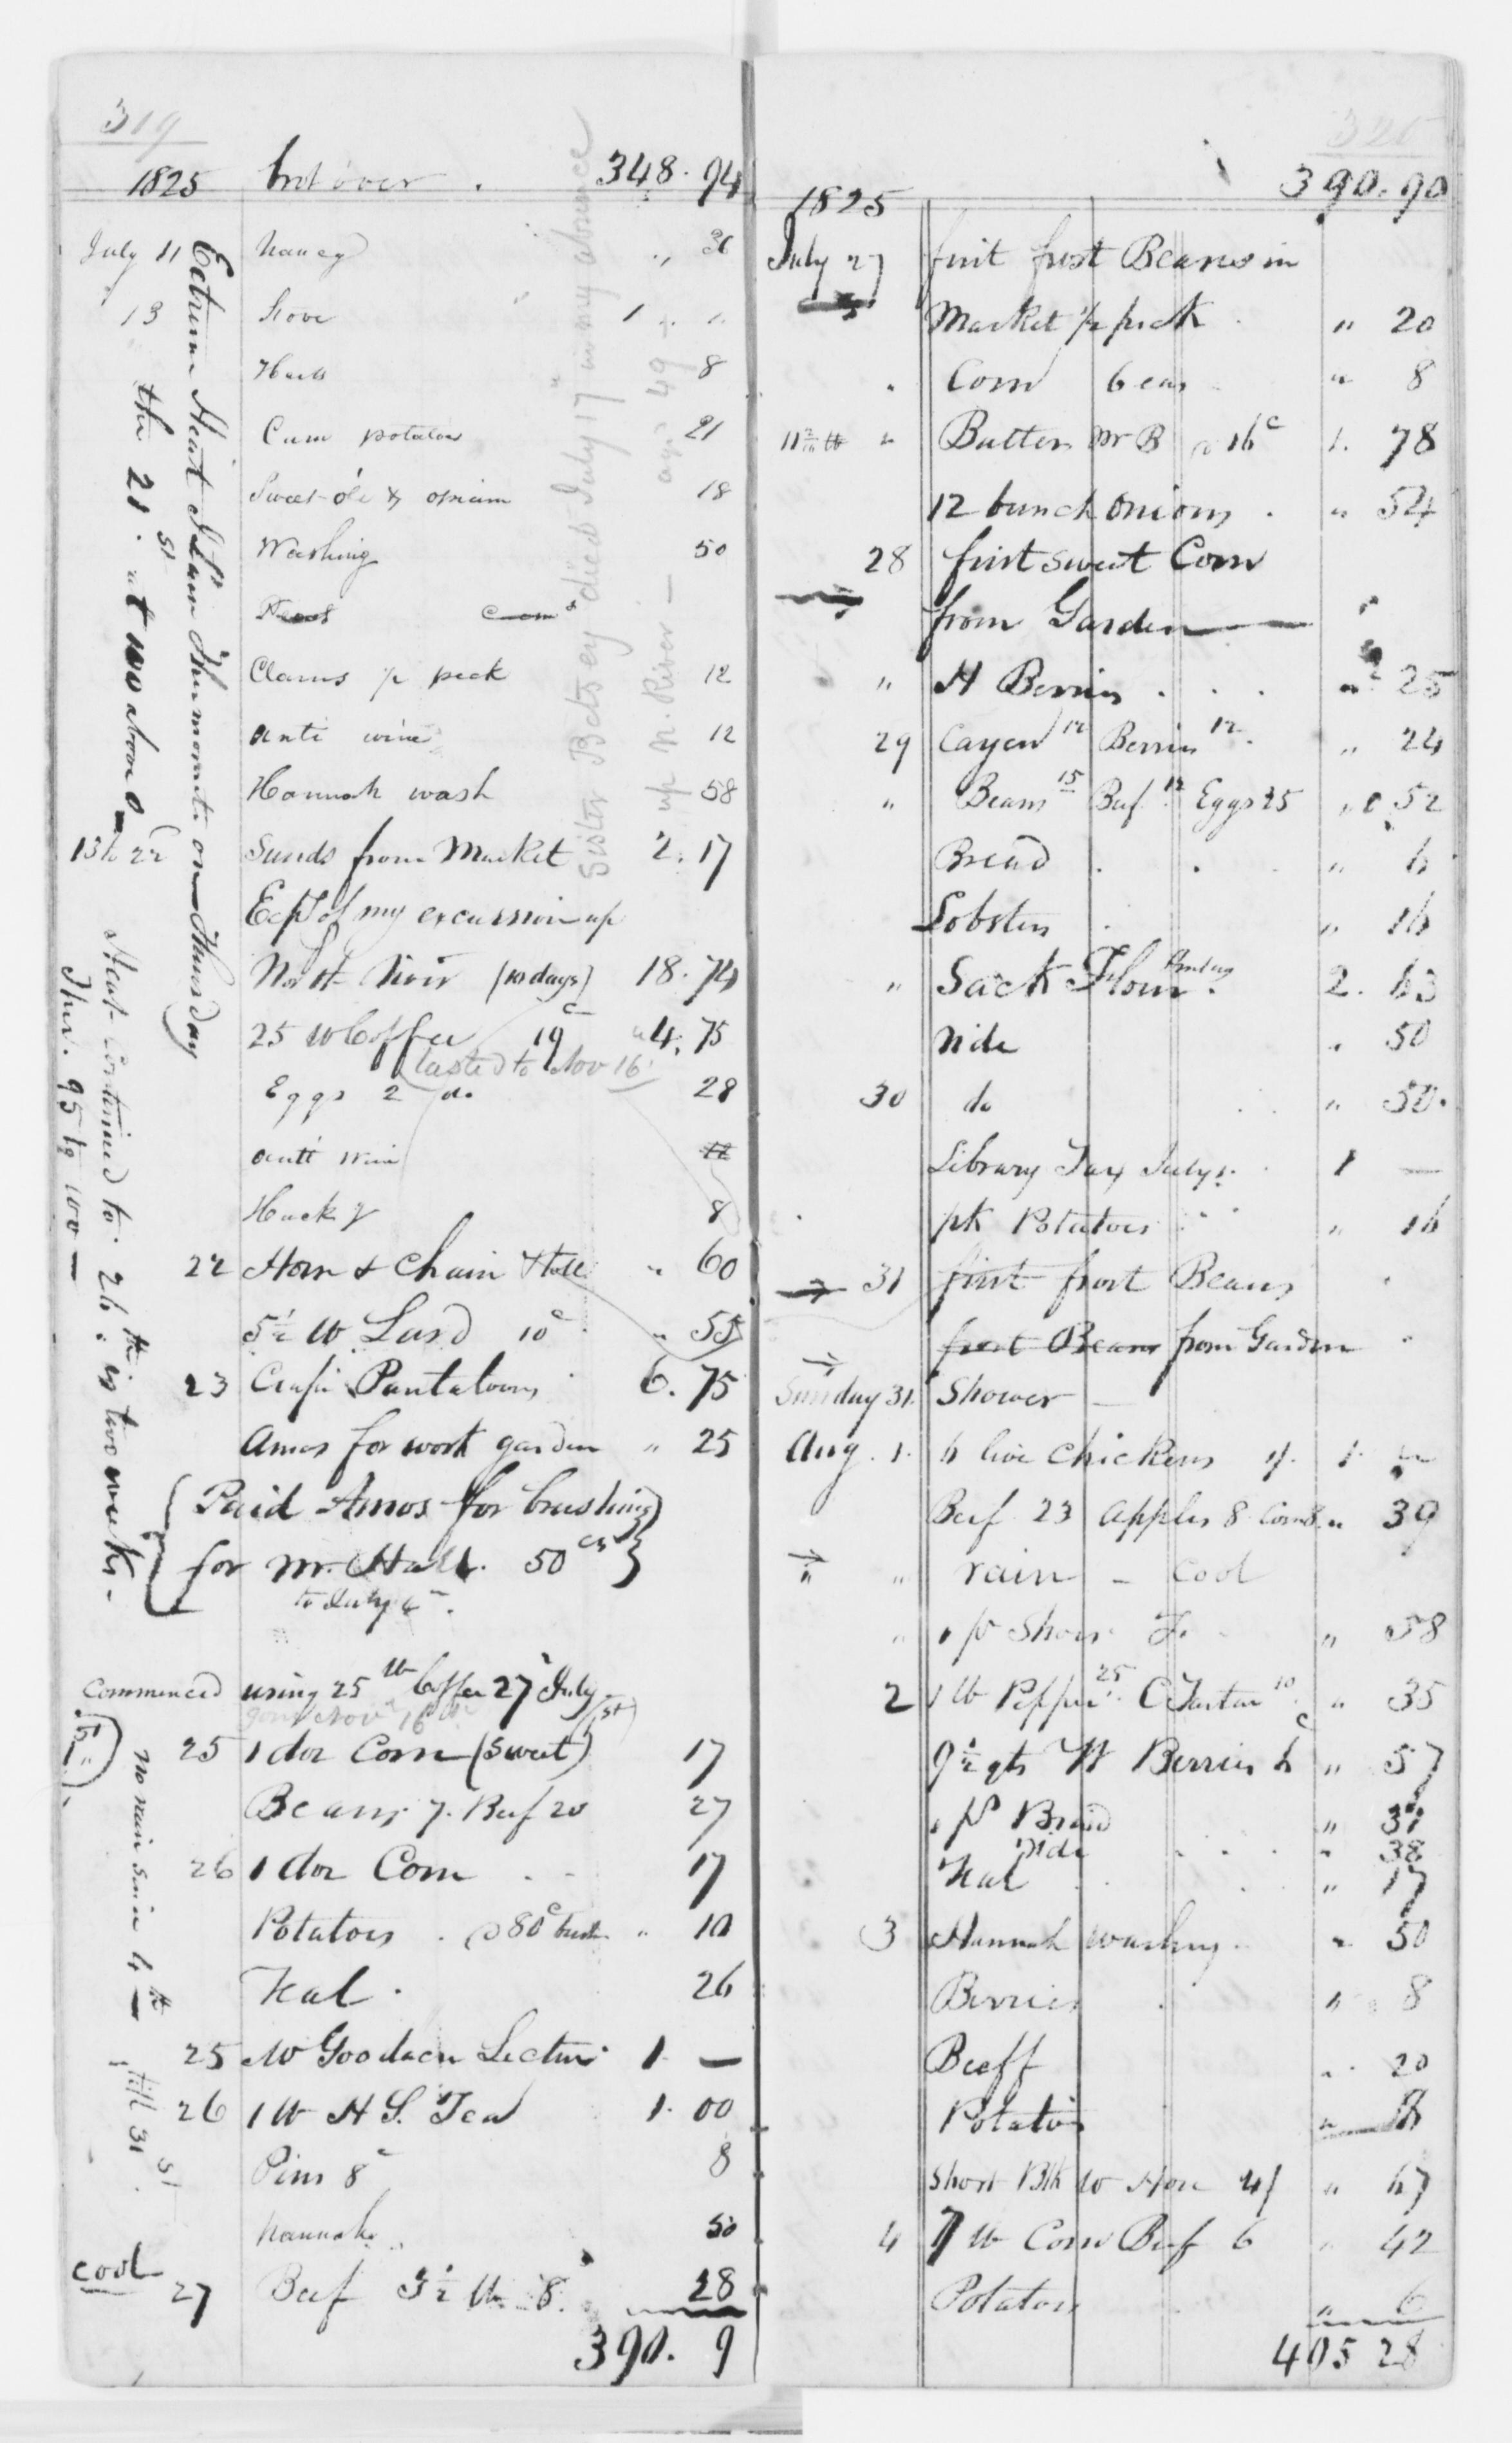 319
1825 brot over . 348. 94
July 11 Nancy " 36
13 Stove 1 " "
Huck 8
Cum potatoes 21
Sweet oil & opium 18
Washing 50
Clams ½ peck 12
Anti wine 12
Hannah wash 58
13 to 22 Sunds from Market 2. 17
Exps of my excursion up
North River (10 days) 18. 74
25 lb Coffee 19c 4. 75
lasted to Nov 16
Eggs 2 do. 28
antt wine 12
Huck y 8
22 Horn & Chain " 60
5½ lb Lard 10c " 55
23 Pantaloons 6. 75
Amos for work garden " 25
Paid Amos for brushing
for Mr. Hall. 50 cts
to July 4
Commenced using 25 lb Coffee 27 July
gone Nov 16th
25 1 doz Corn (Sweet) (1st) 17
Beans 7. Beef 20 27
26 1 doz Corn 17
Potatoes . @ 80c bush " 10
Veal . 26
25 Lecture 1. —
26 1 lb H S. Tea 1. 00
Pins 8c 8
Hannah 50
cool
27 Beef 3½ lb 8. 28
390. 9
Extreme Heat Thermometer on Thursday
the 21st at 100 above 0
Heat continued to 26th in two weeks.
Ther. 95 to 100 —
1st
no rain since 4th —
till 31st
Sister Betsey died July 17th in my absence
up N. River — age 49 —
320
1825 390. 90
July 27 first frost Beans in
Market ½ peck " 20
" Corn 6 ears " 8
11 2/16 lb " Butter Mr B @ 16c 1. 78
12 bunch Onions . " 54
28 first sweet Corn
from Garden —
" H Berries . . . " 25
29 Cayen 12 Berries 12. " 24
" Beans 15 Beef 12 Eggs 25 " 52
Bread . . " 6
Lobsters . " 16
" Sack Flour. 2. 63
Ride " 50
30 do " 50.
Library Tax July 1 —
pk Potatoes " 16
31 first frost Beans
frost Beans from Garden
Sunday 31. Shower —
Aug. 1. 6 live Chickens 1.
Beef 23 Apples 8 Corn 8. " 39
" rain — Cool
" 1 pr Shoes " 58
2 1 lb Pepper 25 C Tartar 10 " 35
9½ qts W Berries 6c " 57
Ride " 38
Veal " 17
3 Hannah washing. " 50
Berries " 8
Beeff " 20
Potatoes " 16
Short Blk W Hose 4/ " 67
4 7 lb Corn Beef 6 " 42
Potatoes " 6
405 28